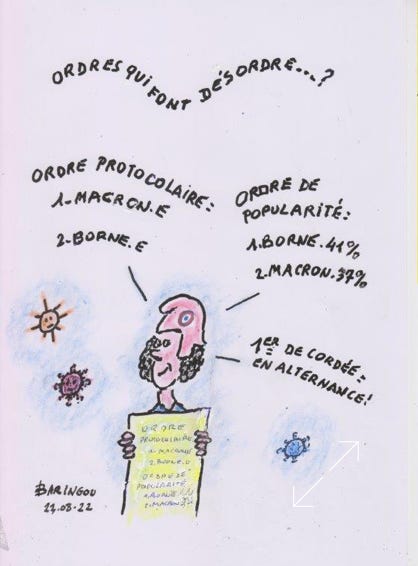 ORDRES QUI FONT DÉSORDRE....?
ORDRE PROTOCOLAIRE:
1-MACRON.E
2-BORNE.E
ORDRE DE
POPULARITÉ:
1.BORNE.41%
2.MACRON.37%
1ER DE CORDÉE:
EN ALTERNANCE!
ORDRE
PROTOCOLAIRE
1-MACRON
2.BORNE
ORDRE DE
POPULARITÉ
1.BORNE
2.MACRON
BARINGOU